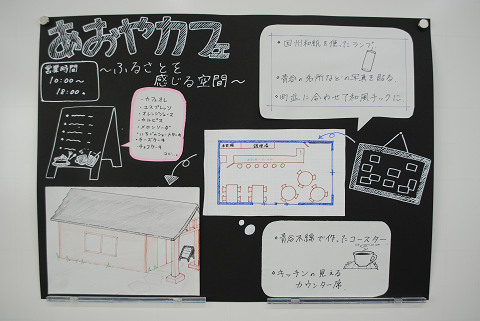 あおやカフェ
～ふるさとを
感じる空間～
営業時間
10:00～
18:00。
・カフェオレ
・エスプレッソ
・オレンジジュース
・カルピス
・メロンソーダ
・いちごのショートケーキ
・チーズケーキ
・チョコケーキ
・因州和紙を使ったランプ。
・青谷の名所などの写真を貼る
・町並に合わせて和風チックに
調理場
・青谷木綿で作ったコースター
・キッチンの見える
カウンター席